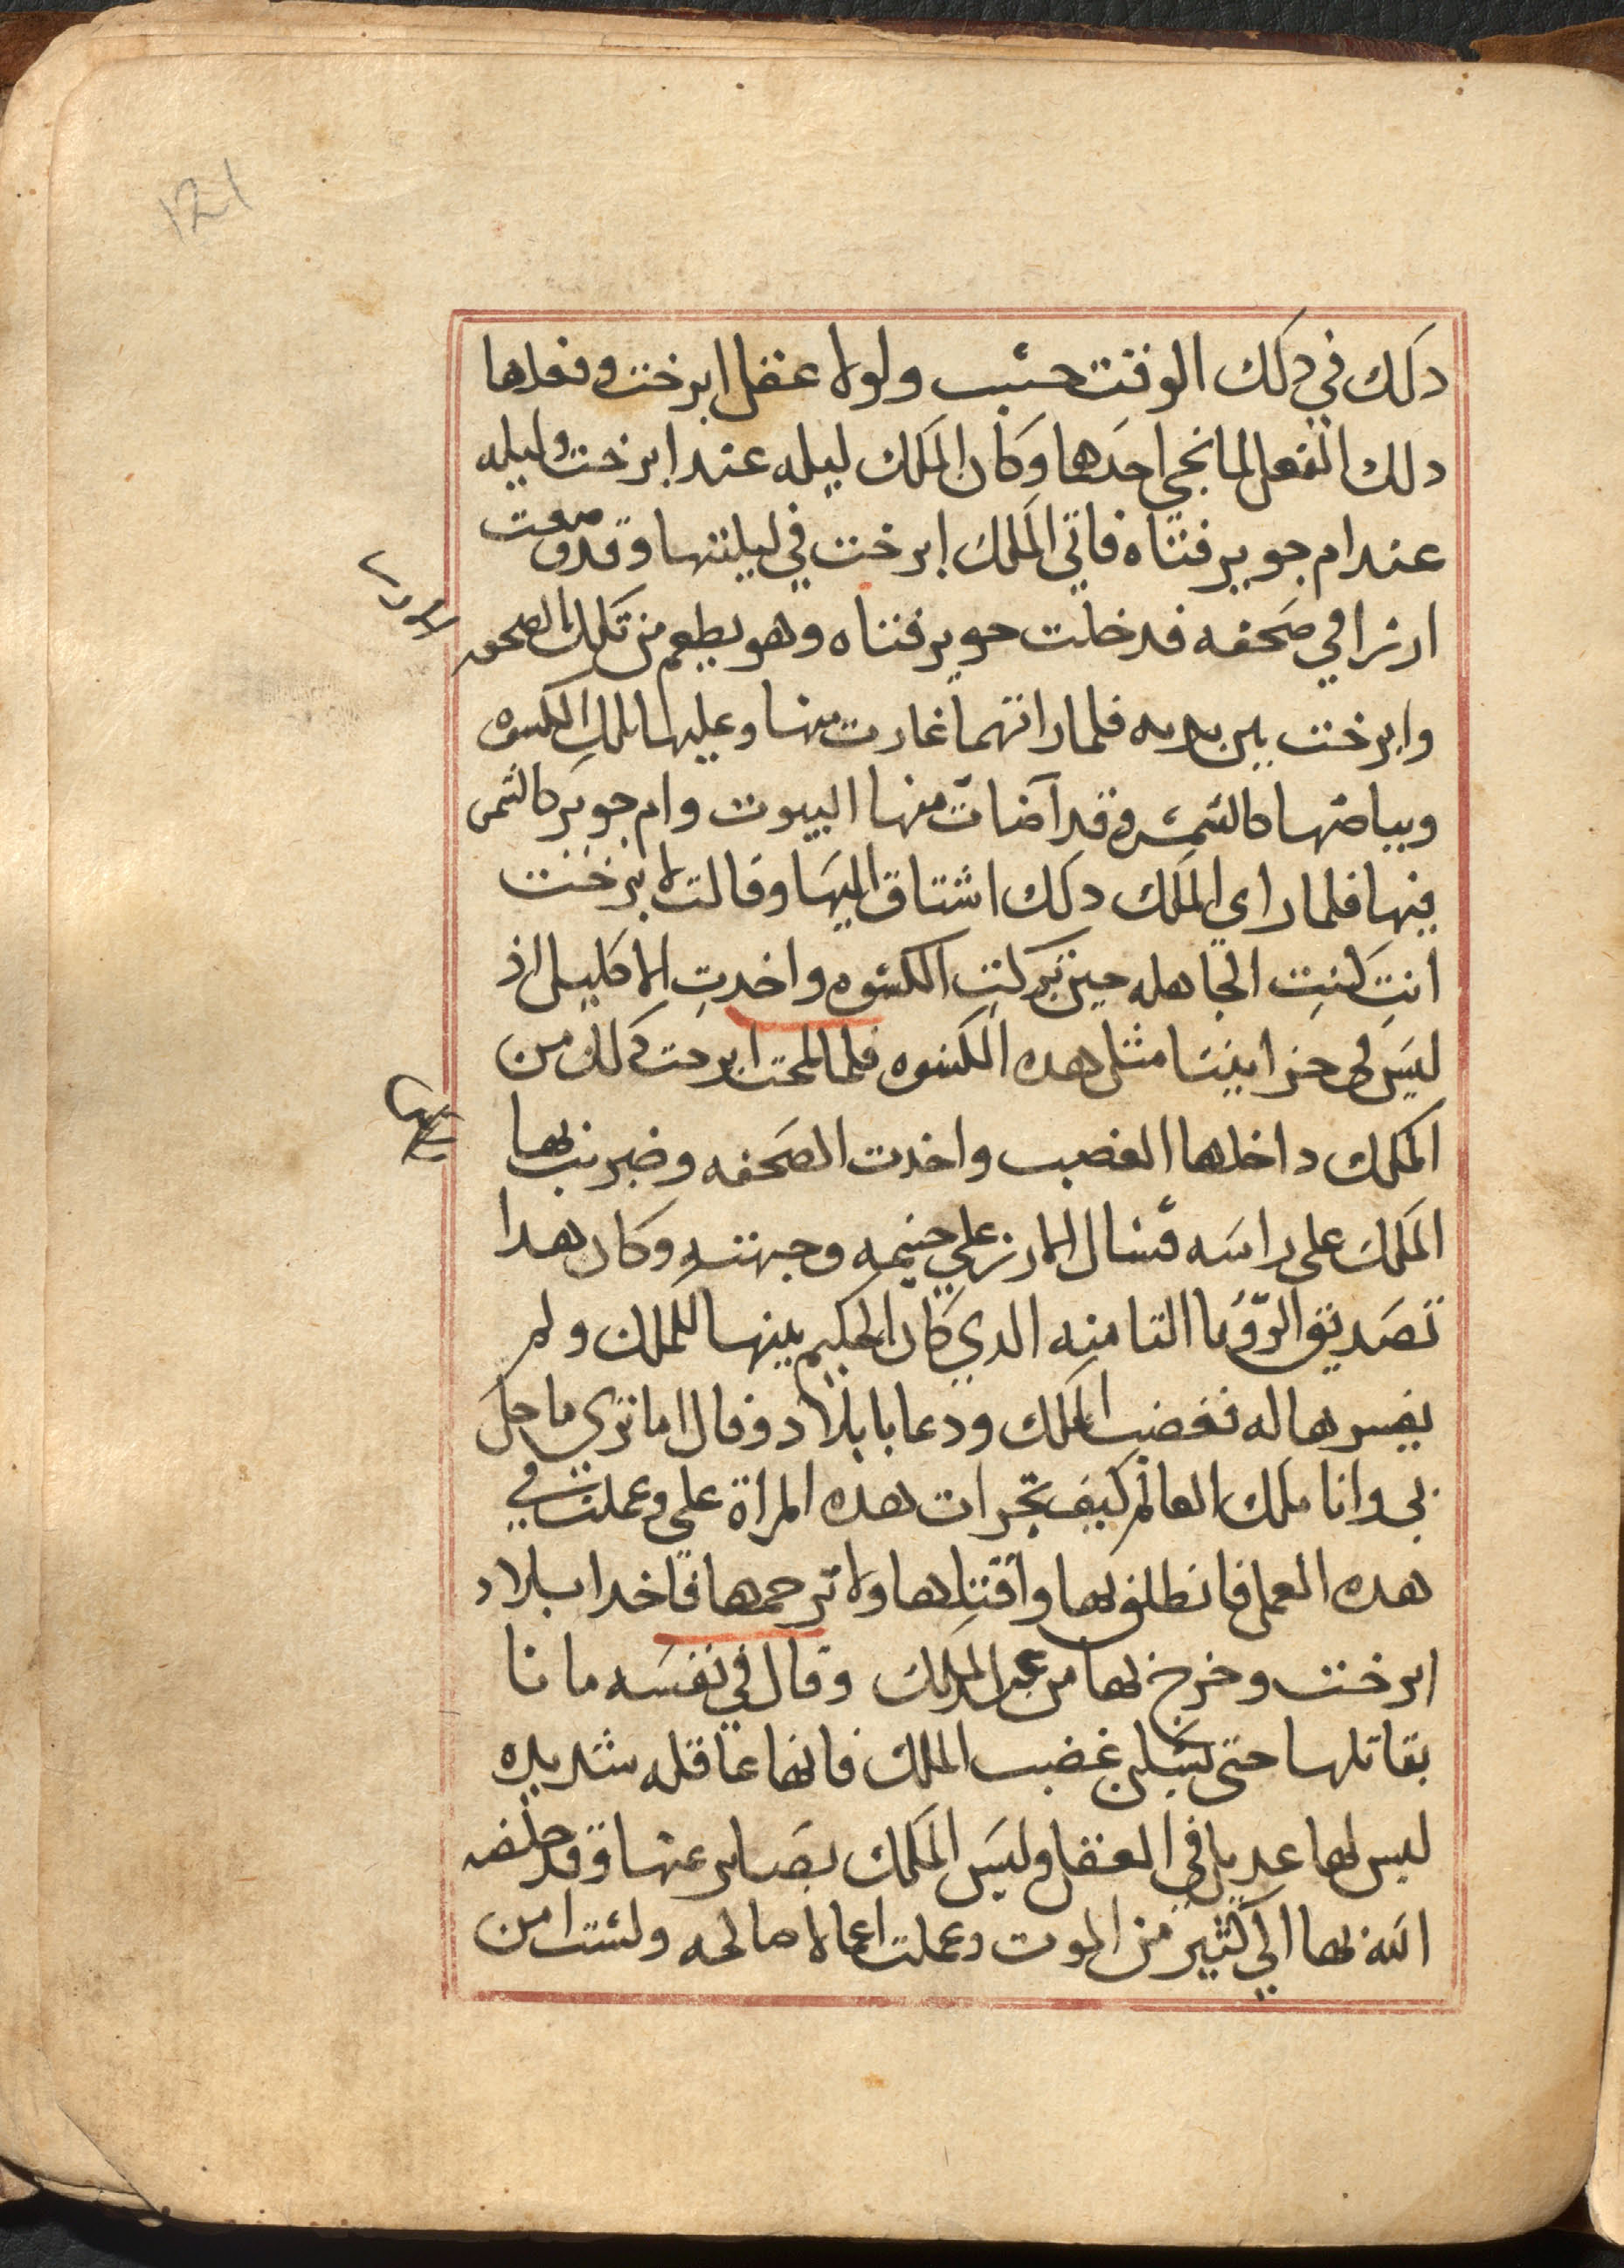 121
دلك في دلك الوقت حسب ولولا عقل ابرخت وفعلها
دلك الفعل لما نجي احدها وكان الملك ليله عند ابرخت وليله
عند ام جوبر فتناه فاتي الملك ابرخت في ليلتها وقد صنعت
ارزا في صحفه فدخلت جوبر فتناه وهو يطعم من تلك الصحفه
وابرخت بين يديه فلما راتهما غارت منها وعليها تلك الكسوه
وبياضها كالشمس وقد اضات منها البيوت وام جوبر كالشمس
فيها فلما راى الملك دلك اشتاق اليها وقالت لابرخت
انتِ كنتِ الجاهله حين تركتِ الكسوه واخدتِ الاكليل اذ
ليس في خزايننا مثل هده الكسوه فلما لمحت ابرخت دلك من
الملك داخلها الغضب واخدت الصحفه وضربت بها
الملك على راسه فسال الارز علي جنبيه وجبهته وكان هدا
تصديق الرؤيا التامنه الدي كان الحكيم بينها للملك ولم
يفسرها له فغضب الملك ودعا بابلاد وقال اما تري ما حل
بى وانا ملك العالم كيف تجرات هده المراة على وعملت في
هده العمل فانطلق بها واقتلها ولا ترحمها فاخد ابلاد
ابرخت وخرج بها من عند الملك وقال في نفسه ما انا
بقاتلها حتى يسكن غضب الملك فانها عاقله شديده
ليس لها عديل في العقل وليس الملك بصابر عنها وقد خلص
الله بها الي كثير من الموت وعملت اعمالا صالحه ولست امن